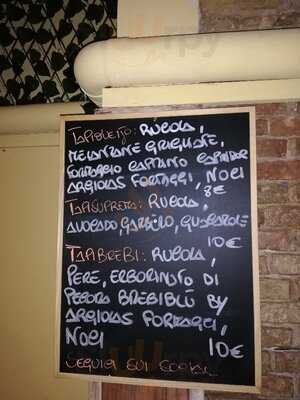 TAPIOLETJO: RUCOLA,
MELANZANE GRIGLIATE,
FORMAGGIO CAPRINO
ARGIOLAS FORMAGGI, NOCI
8€
TAPISUPRETA: RUCOLA,
AVOCADO, GUASCAROLE
10€
TAPIBREBI: RUCOLA,
PERE, ERBORINATO DI
PECORA BREBIBLÙ BY
ARGIOLAS FORMAGGI,
NOCI 10€
SEGUICI SUI SOCIAL